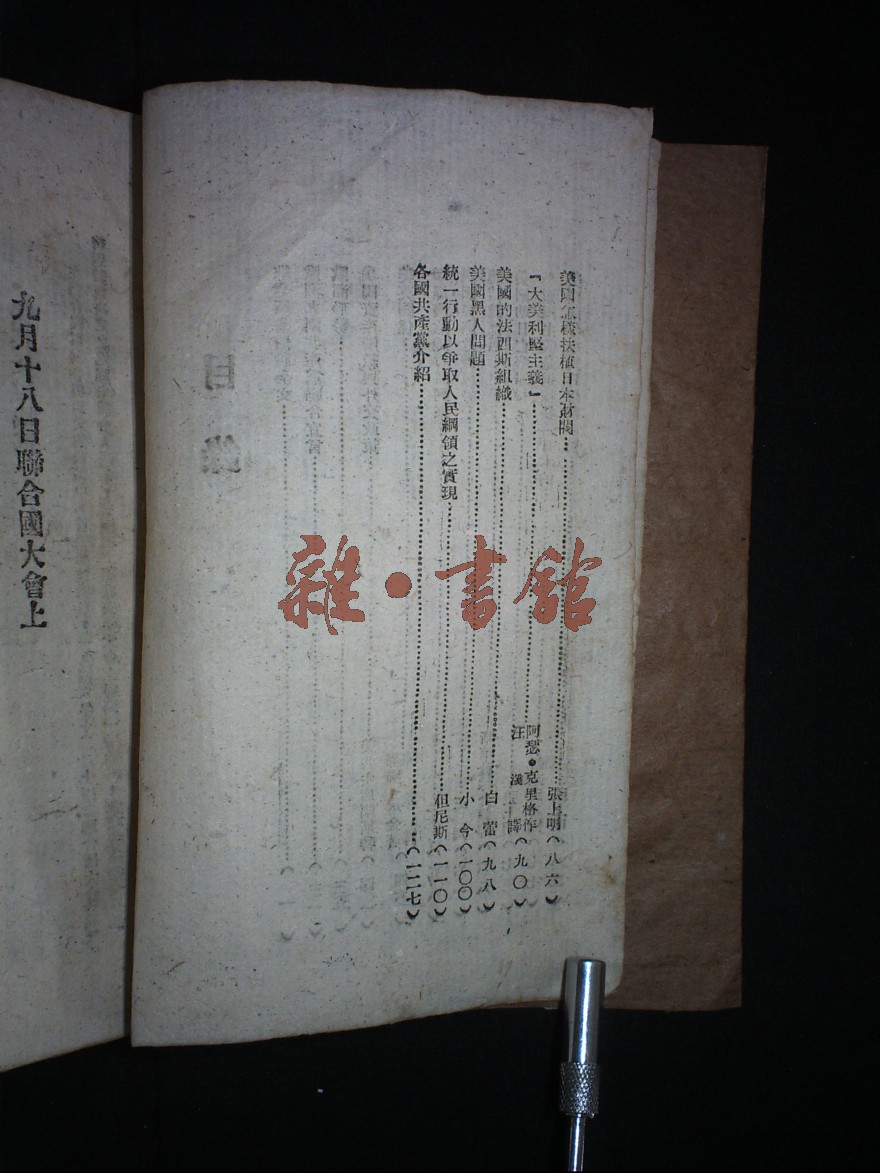 美國怎樣扶植日本財閥……張上明(八六)
「大美利堅主義」……阿瑟·克里格作
汪淺譯(九〇)
美國的法西斯組織……白蕾(九八)
美國黑人問題……小今(一〇〇)
統一行動以爭取人民綱領之實現……但尼斯(一一〇)
各國共產黨介紹……(一二七)
九月十八日聯合國大會上
雜·書館